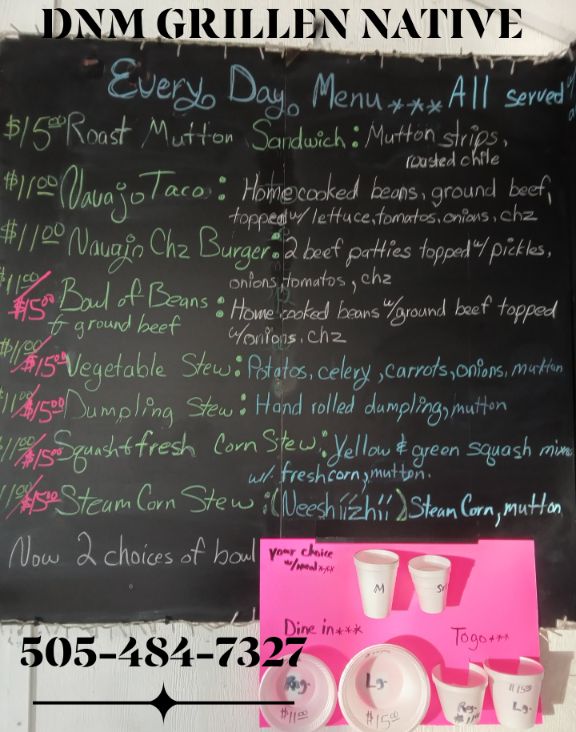 DNM GRILLEN NATIVE
Every Day. Menu *** All served
$15.00 Roast Mutton Sandwich: Mutton strips,
roasted chile
$11.00 Navajo Taco: Homecooked beans, ground beef,
topped w/ lettuce, tomatos, onions, chz
$11.00 Navajo Chz Burger: 2 beef patties topped w/ pickles,
onions, tomatos, chz
$11.00/$15.00 Bowl of Beans: Home cooked beans w/ground beef topped
& ground beef w/onions, chz
$11.00/$15.00 Vegetable Stew: Potatos, celery, carrots, onions, mutton
$11.00/$15.00 Dumpling Stew: Hand rolled dumpling, mutton
$11.00/$15.00 Squash & fresh Corn Stew: Yellow & green squash
w/ fresh corn, mutton.
$11.00/$15.00 Steam Corn Stew: (Neeshíízhíí) Steam Corn, mutton
Now 2 choices of bowl
your choice
w/meal ***
M
Sm
Dine in ***
Togo ***
505-484-7327
Reg.
$11.00
Lg.
$15.00
Reg.
$11.00
$15.00
Lg.